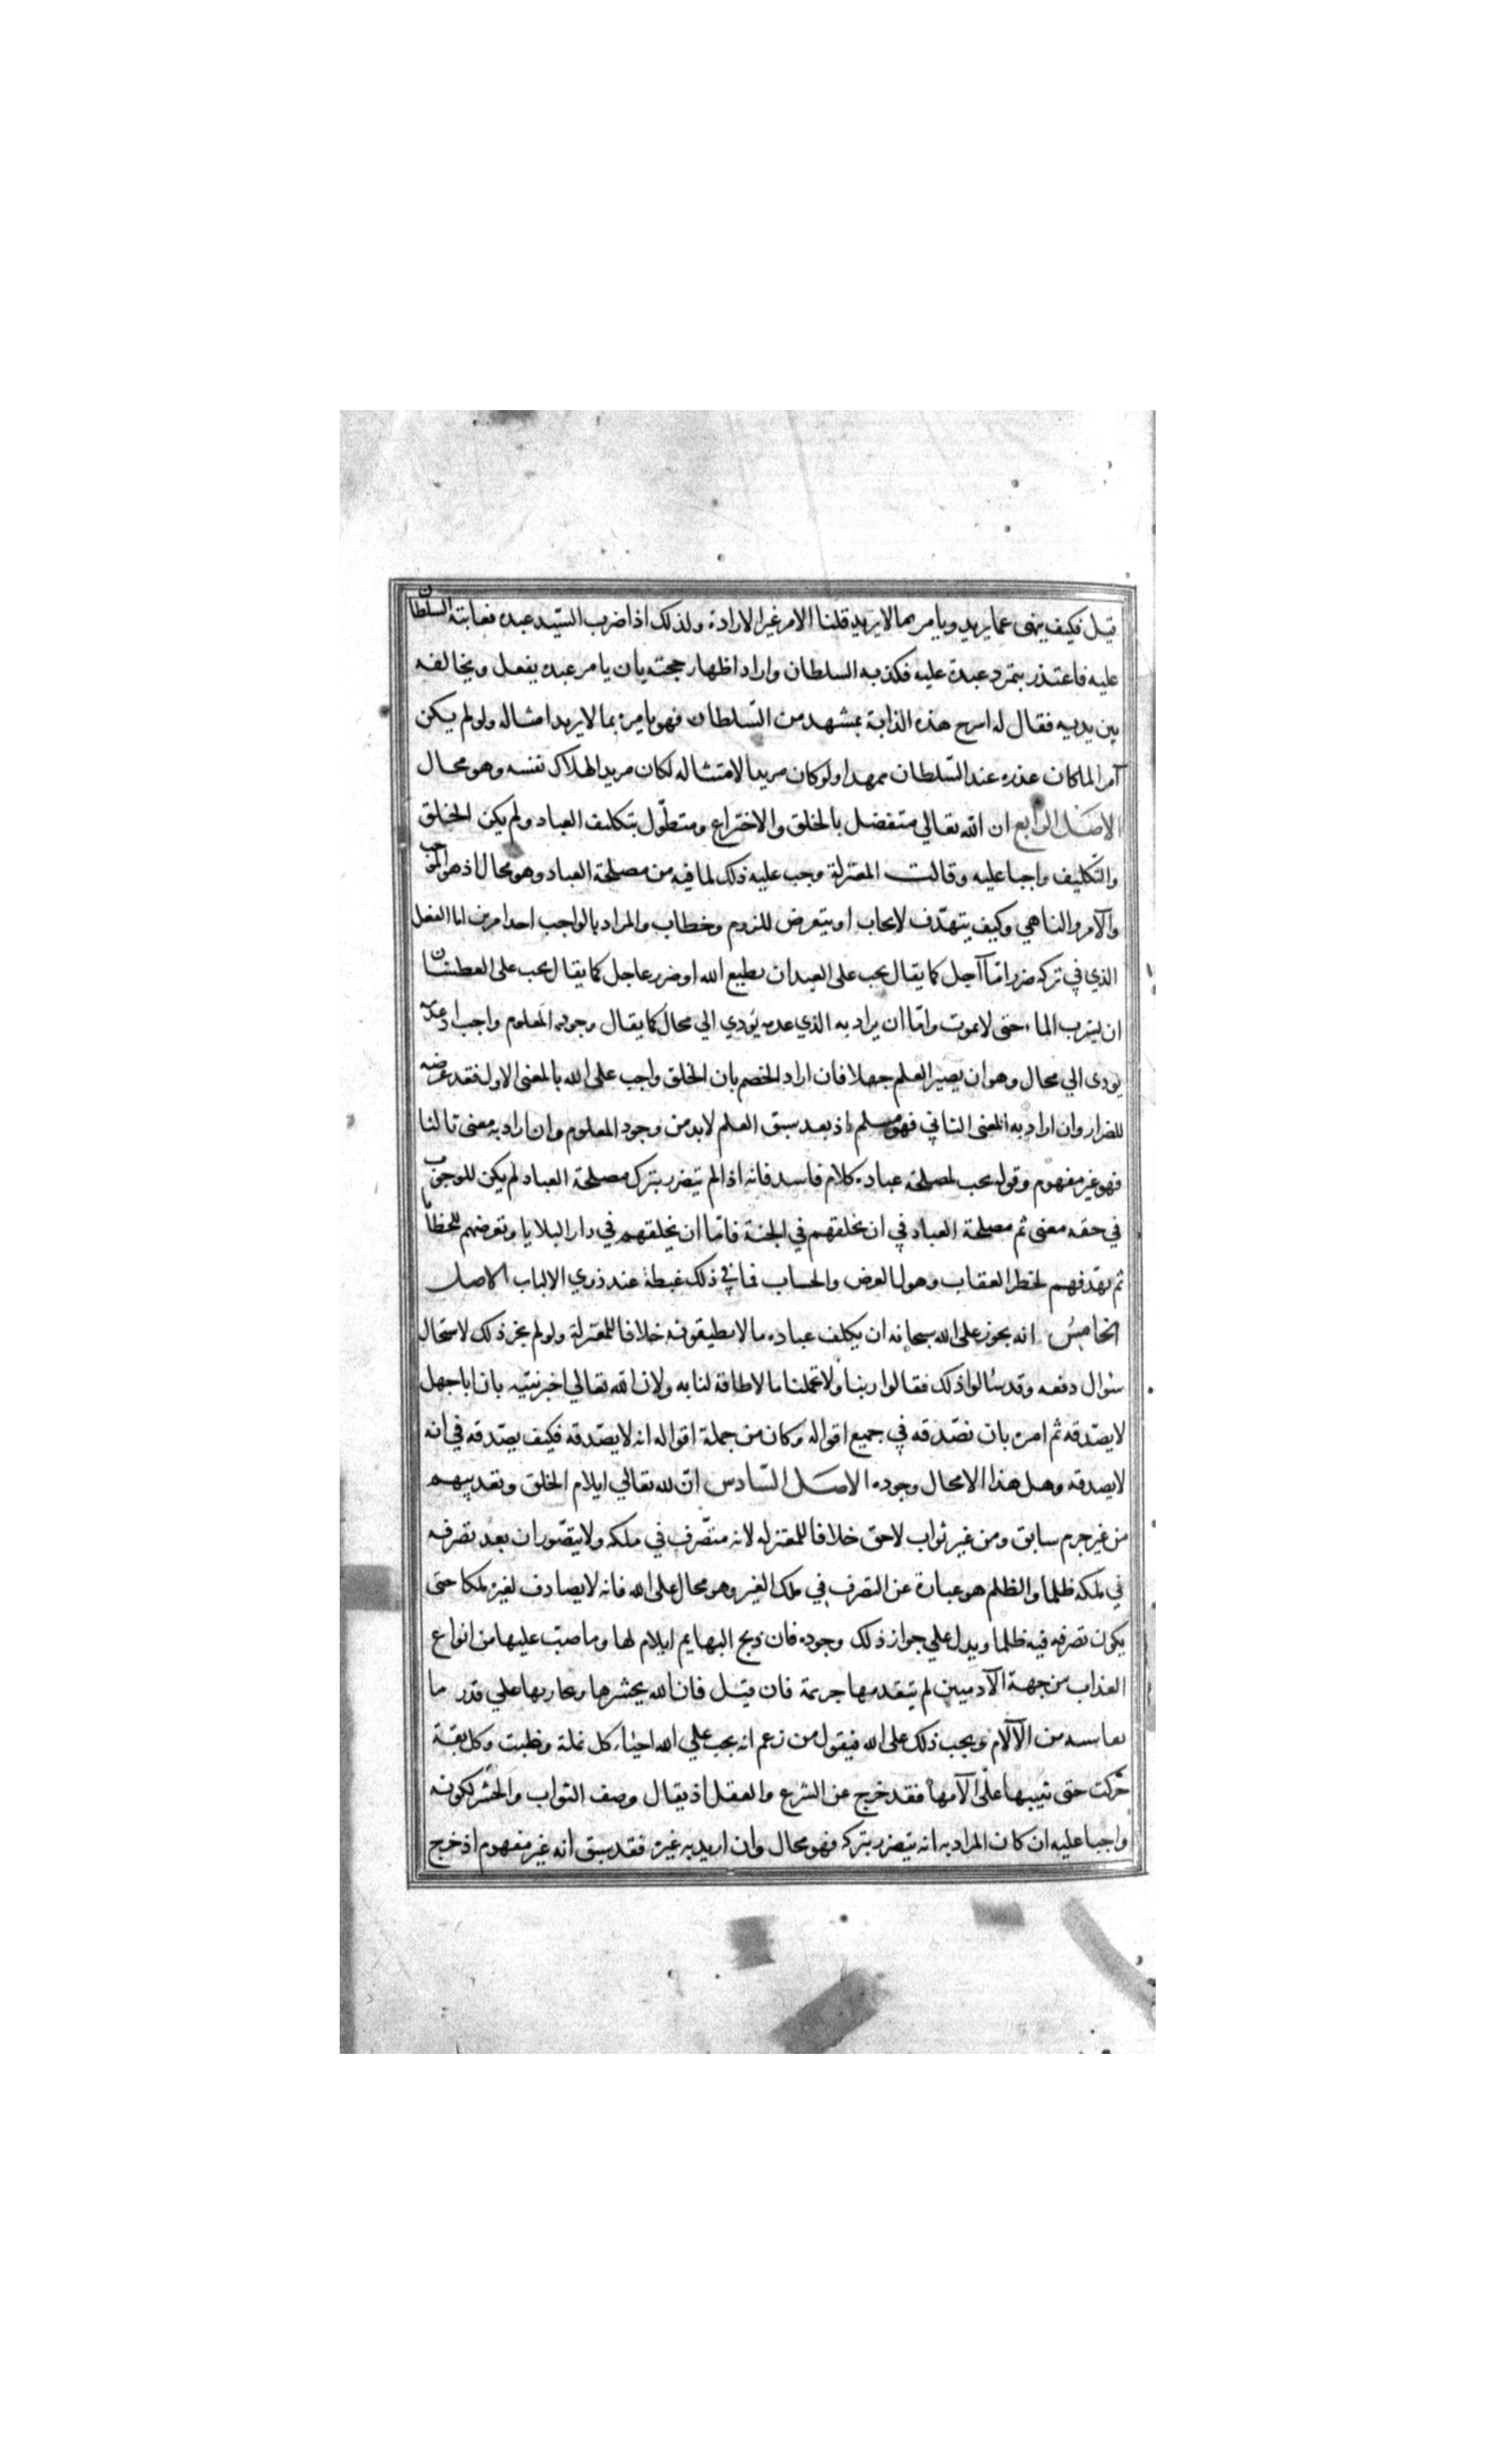 قيل فكيف ينهى عما يريد ويامر بما لا يريد قلنا الامر غير الارادة ولذلك اذا ضرب السّيد عبده فعابته السلطان
عليه فاعتذر بتمرد عبده عليه فكذبه السلطان واراد اظهار حجته بان يامر عبده بفعل ويخالفه
بين يديه فقال له اسرج هذه الدابة بمشهد من السّلطان فهو يامره بما لا يريد امتثاله ولو لم يكن
آمرا لما كان عذره عند السّلطان ممهدا ولو كان مريدا لامتثاله لكان مريدا لهلاك نفسه وهو محال
الاصل الرابع ان الله تعالي متفضل بالخلق والاختراع ومتطّول بتكليف العباد ولم يكن الخلق
والتكليف واجبا عليه وقالت المعتزلة وجب عليه ذلك لما فيه من مصلحة العباد وهو محال اذ هو الموجب
والآمر والناهي وكيف يتهدّف لايجاب او يتعرض للزوم وخطاب والمراد بالواجب احد امرين اما الفعل
الذي في تركه ضرر امّا آجل كما يقال يجب على العبد ان يطيع الله او ضرر عاجل كما يقال يجب على العطشان
ان يشرب الماء حتى لا يموت وامّا ان يراد به الذي عدمه يؤدي الي محال كما يقال وجود المعلوم واجب اذ عدمه
يودى الي محال وهو ان يصير العلم جهلا فان اراد الخصم بان الخلق واجب على الله بالمعنى الاول فقد عرضه
للضرار وان اراد به المعنى الثاني فهو مسلم اذ بعد سبق العلم لا بد من وجود المعلوم وان اراد به معنى ثالثا
فهو غير مفهوم وقوله يجب لمصلحة عباده كلام فاسد فانه اذا لم يتضرر بترك مصلحة العباد لم يكن للوجوب
في حقه معنى ثم مصلحة العباد في ان يخلقهم في الجنة فامّا ان يخلقهم في دار البلايا وتعرضهم للخطايا
ثم يهدفهم لخطر العقاب وهول العرض والحساب فما في ذلك غبطة عند ذوي الالباب الاصل
الخامس انه يجوز على الله سبحانه ان يكلف عباده ما لا يطيقونه خلافا للمعتزلة ولو لم يجز ذلك لاستحال
سؤال دفعه وقد سالوا ذلك فقالوا ربنا ولا تحملنا ما لا طاقة لنا به ولان الله تعالي اخبر نبيّه بان ابا جهل
لا يصّدقه ثم امره بان نصّدقه في جميع اقواله وكان من جملة اقواله انه لا يصّدقه فكيف يصّدقه في انه
لا يصدقه وهل هذا الا محال وجوده الاصل السّادس انّ لله تعالي ايلام الخلق وتعذيبهم
من غير جرم سابق ومن غير ثواب لاحق خلافا للمعتزله لانه متصّرف في ملكه ولا يتصّور ان يعد تصرفه
في ملكه ظلما والظلم هو عبارة عن التصرف في ملك الغير وهو محال على الله فانه لا يصادف لغيره ملكا حتى
يكون تصرفه فيه ظلما ويدل علي جواز ذلك وجوده فان ذبح البهايم ايلام لها وما صبّ عليها من انواع
العذاب من جهة الآدميين لم يتقدمها جريمة فان قيل فان الله يحشرها ويجازيها علي قدر ما
تقاسيه من الآلام ويجب ذلك على الله فيقول من زعم انه يجب علي الله احياء كل نملة وطئت وكل بقة
حُركت حتى يثيبها على الآمها فقد خرج عن الشرع والعقل اذ يقال وصف الثواب والحشر لكونه
واجبا عليه ان كان المراد به انه يتضرر بتركه فهو محال وان اريد به غيره فقد سبق انه غير مفهوم اذ خرج